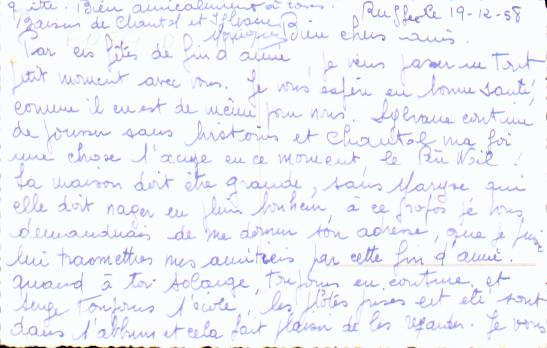 g ête. Bien amicalement à vous.
Ruffec le 19-12-58
Baisers de Chantal et Sylvane
Monique
Bien chers amis.
Par ces fêtes de fin d'année je viens passer un tout
petit moment avec vous. Je vous espère en bonne santé,
comme il en est de même pour nous. Sylvane continue
de pousser sans histoires et Chantal ma foi
une chose l'axige en ce moment le Père Noël !
La maison doit être grande, sans Maryse qui
elle doit nager en plein bonheur, à ce propos je vous
demanderais de me donner son adresse, que je puisse
lui transmettre mes amitiés par cette fin d'année.
quand à toi Solange, toujours en couture, et
Serge toujours l'école, les photos prises cet été sont
dans l'album et cela fait plaisir de les regarder. Je vous